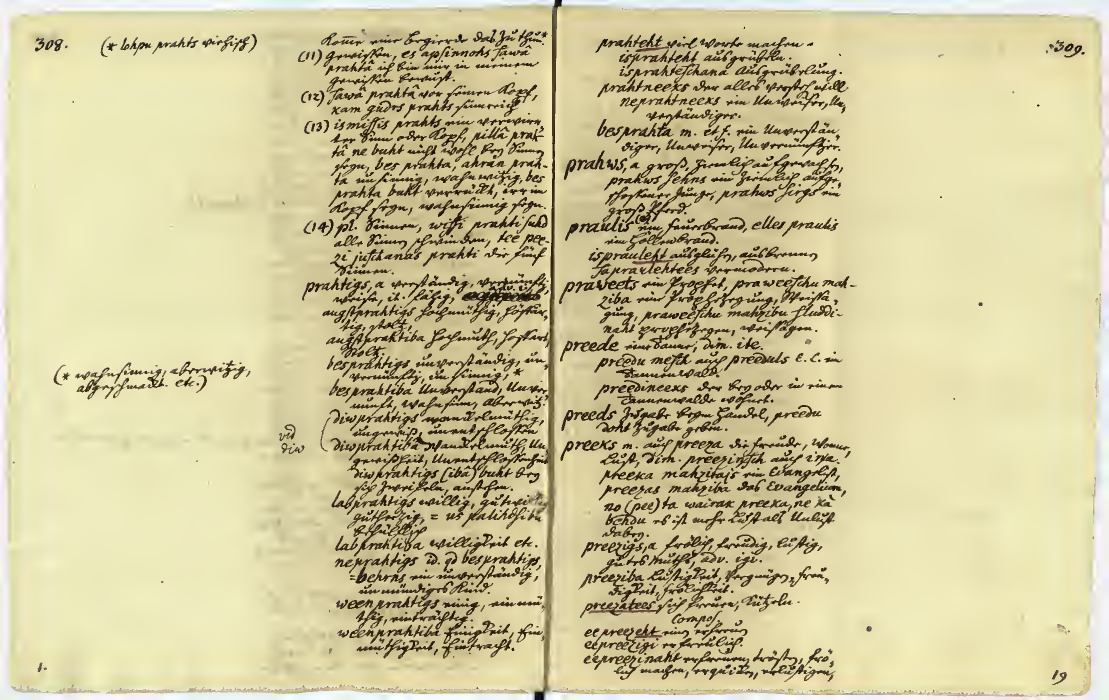 308.
(* lohpu prahts viehisch)
komme eine Begierde das zu thun*
(11) gewissen, es apsinnohs sawâ
prahtâ ich bin mir in meinem
gewissen bewust.
(12) sawâ prahtâ vor seinen Kopf,
kam gudrs prahts sinnreich
(13) ismissis prahts ein verwirr-
ter Sinn oder Kopf, pillâ prah-
tâ ne buht nicht wohl bey Sinnen
seyn, bes prahta, ahran prah-
ta unsinnig, wahnwitzig, bes
prahta buht verrückt, irre im
Kopf seyn, wahnsinnig seyn.
(14) pl. Sinnen, wissi prahti suhd
alle Sinnen schwinden, tee pee-
zi juschanas prahti die fünf
Sinnen.
prahtigs, a verständig, vernünftig,
weise, it. fähig,
augstprahtigs hochmüthig, hoffär-
tig, stolz.
augstprahtiba Hochmuth, Hoffart,
Stolz.
besprahtigs unverständig, un-
vernünftig, unsinnig, *
besprahtiba Unverstand, Unver-
nunft, wahnsinn, Aberwitz.
(* wahnsinnig, aberwitzig,
abgeschmackt. etc.)
diwprahtigs wankelmüthig,
ungewiß, unentschlossen
vid
diw
diwprahtiba Wankelmuth, Un-
gewißheit, Unentschlossenheit
diwprahtigs (iba) buht bey
sich zweifeln, anstehen.
labprahtigs willig, gutwillig
gutherzig, = us palihdsibu
behülflich
labprahtiba willigkeit etc.
neprahtigs id. qd besprahtigs,
=behrns ein unverständig,
unmündiges Kind.
weenprahtigs einig, einmü-
thig, einträchtig.
weenprahtiba Einigkeit, Ein-
müthigkeit, Eintracht.
1.
309.
prahteht viel worte machen.
isprahteht ausgrübeln.
isprahteschana Ausgrübelung.
prahtneeks der alles verstehn will
neprahtneeks ein Unweiser, Un-
verständiger.
besprahta m. et f. ein Unverstän-
diger, Unweiser, Unvernünftiger.
prahws, a groß, ziemlich aufgewachsen,
prahws sehns ein ziemlich aufge-
schossener Junge, prahws sirgs ein
groß Pferd.
praulis ein Feuerbrand, elles praulis
ein Höllenbrand.
isprauleht ausglühen, ausbrennen
saprauletees vermodern.
praweets ein Prophet, praweeschu mah-
ziba eine Prophezeyung, Weissa-
gung, praweeschu mahzibu sluddi-
naht prophezeyen, weissagen.
preede eine Tanne, dim. ite.
preedu mesch auch preeduls E. L. ein
Tannenwald.
preedineeks der bey oder in einem
Tannenwalde wohnet.
preeds Zugabe beym Handel, preedu
doht Zugabe geben.
preeks m. auch preeza die Freude, Wonne,
Lust, dim. preezinsch auch iņa.
preeka mahzitajs ein Evangelist,
preezas mahziba das Evangelium,
no (pee) ta wairak preeka, ne kâ
behdu es ist mehr Lust als Unlust
dabey.
preezigs, a frölich, freudig, lustig,
gutes Muths, adv. igi.
preeziba Lustigkeit, Vergnügen, Freu-
digkeit, Frölichkeit.
preezatees sich freuen, kützeln.
Compos
eepreezeht einen erfreuen
eepreezigi erfreulich.
eepreezinaht erfreuen, trösten, frö-
lich machen, erquicken, erlustigen,
19